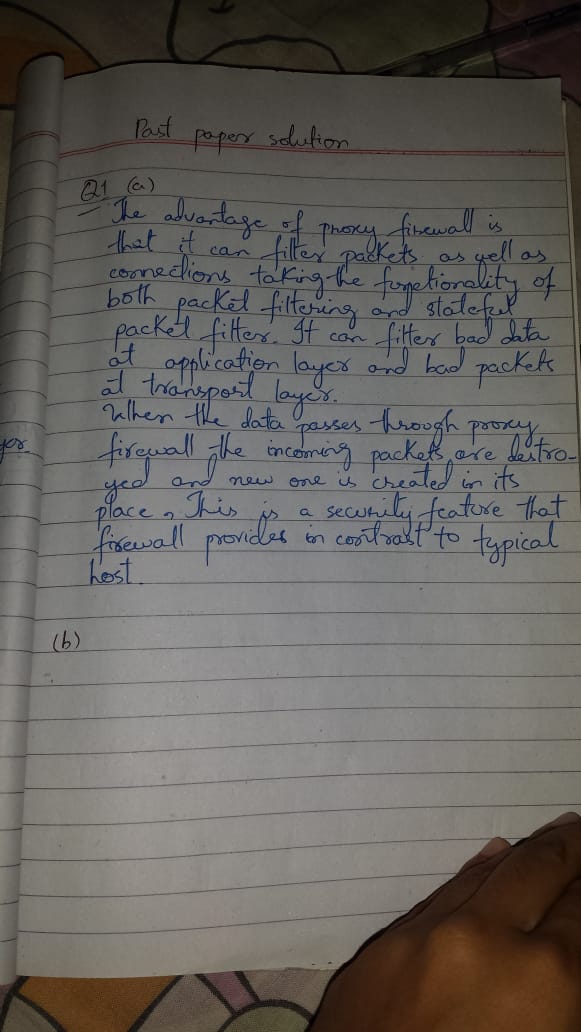 Past paper solution
Q1 (a)
The advantage of proxy firewall is
that it can filter packets as well as
connections taking the functionality of
both packet filtering and stateful
packet filter. It can filter bad data
at application layer and bad packets
at transport layer.
When the data passes through proxy
firewall the incoming packets are destro-
yed and new one is created in its
place. This is a security feature that
firewall provides in contrast to typical
host.
(b)